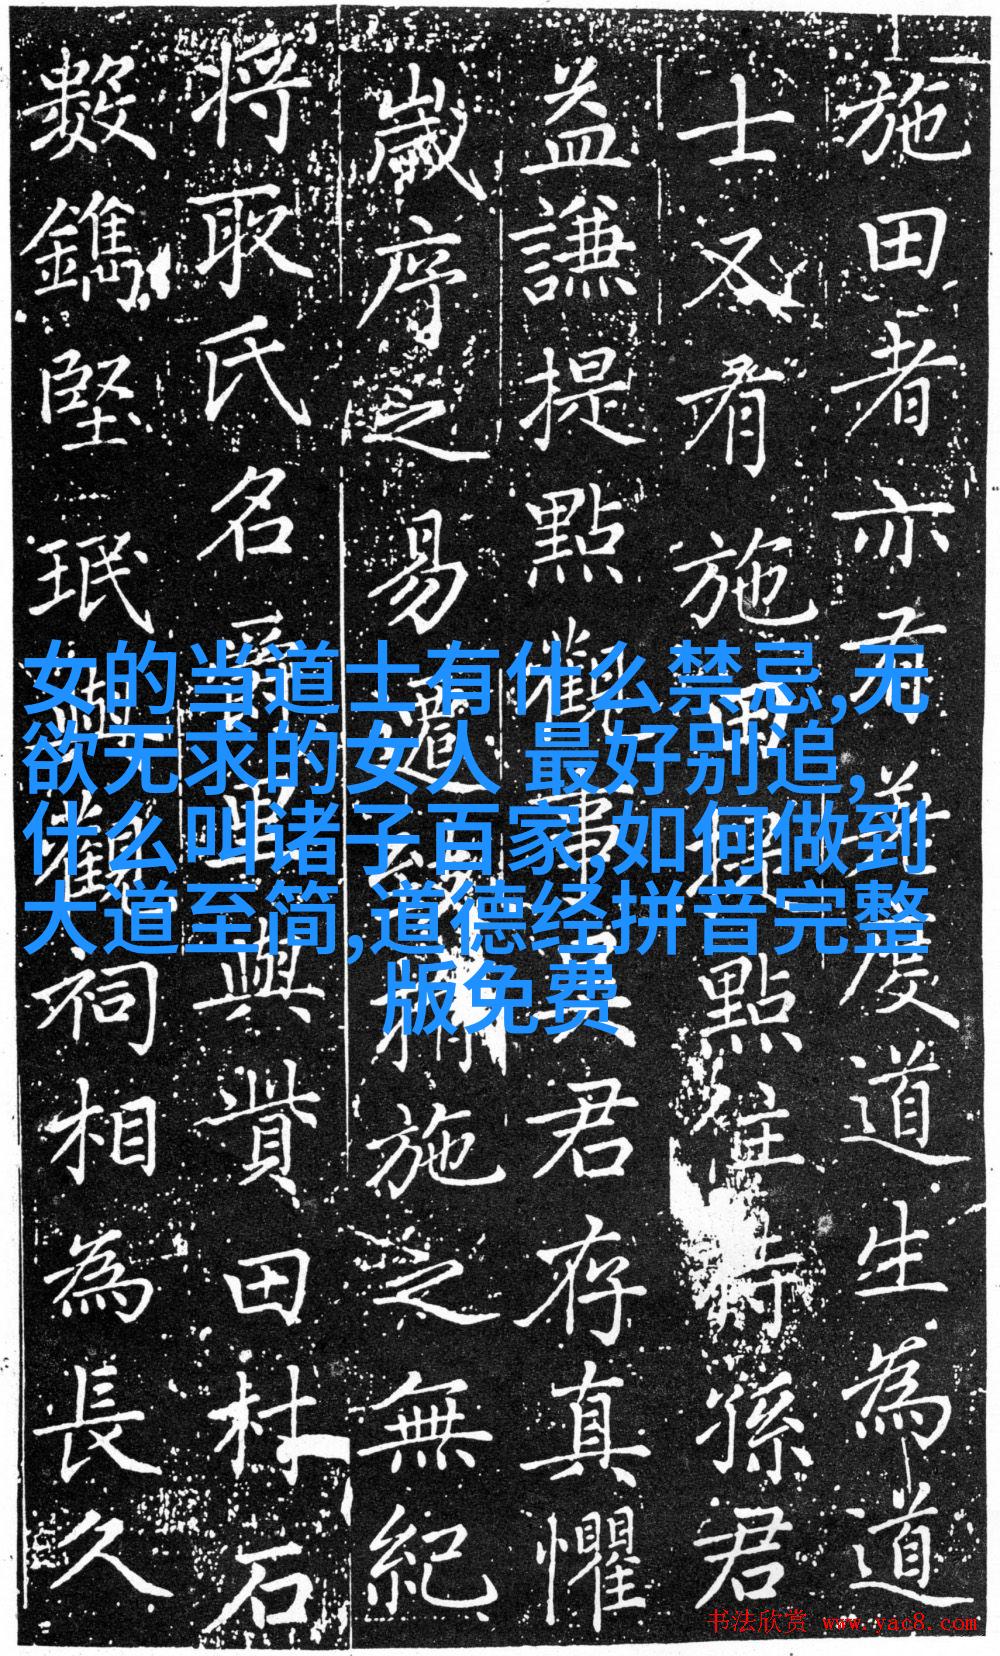 施田者亦有度道生為道
士又有施田提點住持孫君
益謙提點觀事吳君存真懼
歲序之易遷施之無紀
將取氏名與貲田杜石
數鐫堅珉與觀祠相為長久
女的当道士有什么禁忌,无
欲无求的女人 最好别追,
什么叫诸子百家,如何做到
大道至简,道德经拼音完整
版免费
书法欣赏 www.yac8.com